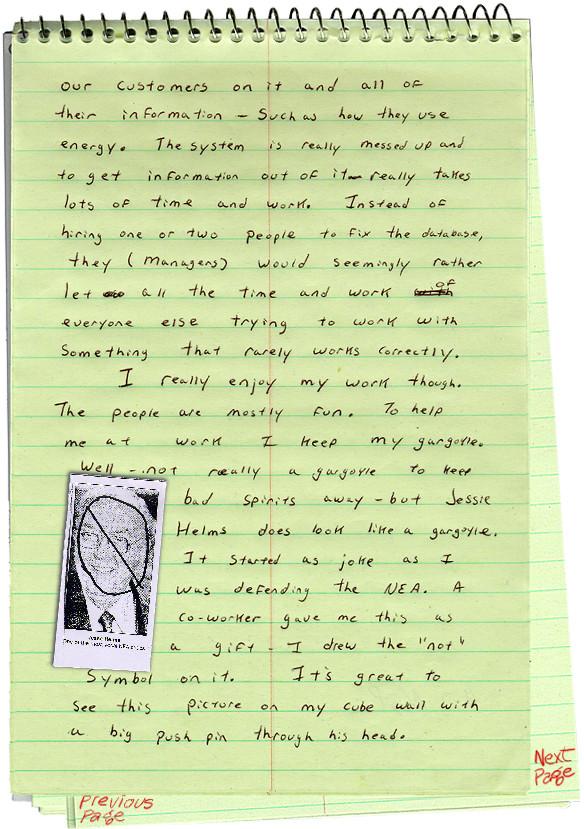 our customers on it and all of
their information - Such as how they use
energy. The system is really messed up and
to get information out of it really takes
lots of time and work. Instead of
hiring one or two people to fix the database,
they (managers) would seemingly rather
let all the time and work of
everyone else trying to work with
Something that rarely works correctly.
I really enjoy my work though.
The people are mostly fun. To help
me at work I keep my gargoyle.
Well - not really a gargoyle to keep
bad spirits away - but Jessie
Helms does look like a gargoyle.
It started as joke as I
was defending the NEA. A
co-worker gave me this as
a gift - I drew the "not"
Symbol on it. It's great to
see this picture on my cube wall with
a big push pin through his head.
Next
Page
Previous
Page